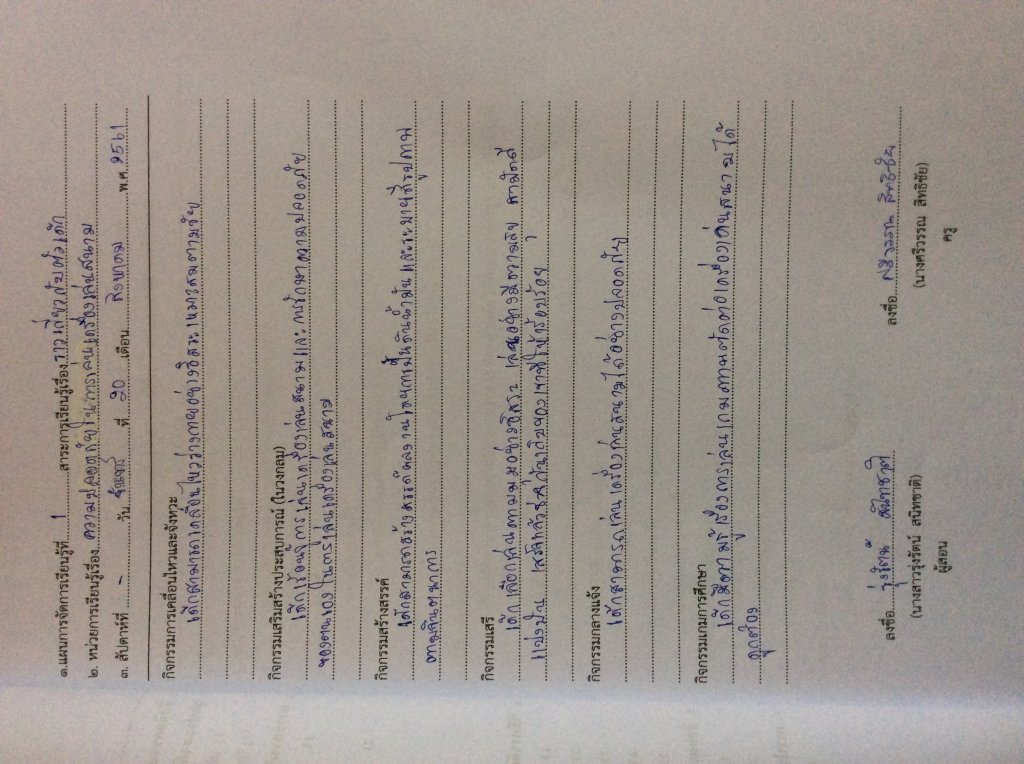 ๑.แผนการจัดการเรียนรู้ที่ 1 สาระการเรียนรู้เรื่อง ราวเกี่ยวกับตัวเด็ก
๒. หน่วยการเรียนรู้เรื่อง ความปลอดภัยในการเล่นเครื่องเล่นสนาม
๓. สัปดาห์ที่ - วัน จันทร์ ที่ 20 เดือน สิงหาคม พ.ศ. 2561
กิจกรรมการเคลื่อนไหวและจังหวะ
เด็กสามารถเคลื่อนไหวร่างกายอย่างอิสระเหมาะสมตามวัย
กิจกรรมเสริมสร้างประสบการณ์ (ในวงกลม)
เด็กเรียนรู้การเล่นเครื่องเล่นสนามและการรักษาความปลอดภัย
ของตนเองในการเล่นเครื่องเล่นสนาม
กิจกรรมสร้างสรรค์
เด็กสามารถสร้างสรรค์ผลงานโดยการปั้นดินน้ำมันและระบายสีรูปภาพ
ตามจินตนาการ
กิจกรรมเสรี
เด็กเลือกเล่นตามมุมอย่างอิสระ เล่นอย่างมีความสุข สามัคคี
แบ่งปัน เสร็จแล้วช่วยกันเก็บของเข้าที่ให้เรียบร้อย
กิจกรรมกลางแจ้ง
เด็กสามารถเล่นเครื่องเล่นสนามได้อย่างปลอดภัย
กิจกรรมเกมการศึกษา
เด็กมีความรู้เรื่องการเล่นเกมภาพตัดต่อเครื่องเล่นสนามได้
ถูกต้อง
ลงชื่อ รุ่งรัตน์ สนิทชาติ ลงชื่อ ศรีวรรณ สิทธิชัย
(นางสาวรุ่งรัตน์ สนิทชาติ) (นางศรีวรรณ สิทธิชัย)
ผู้สอน ครู